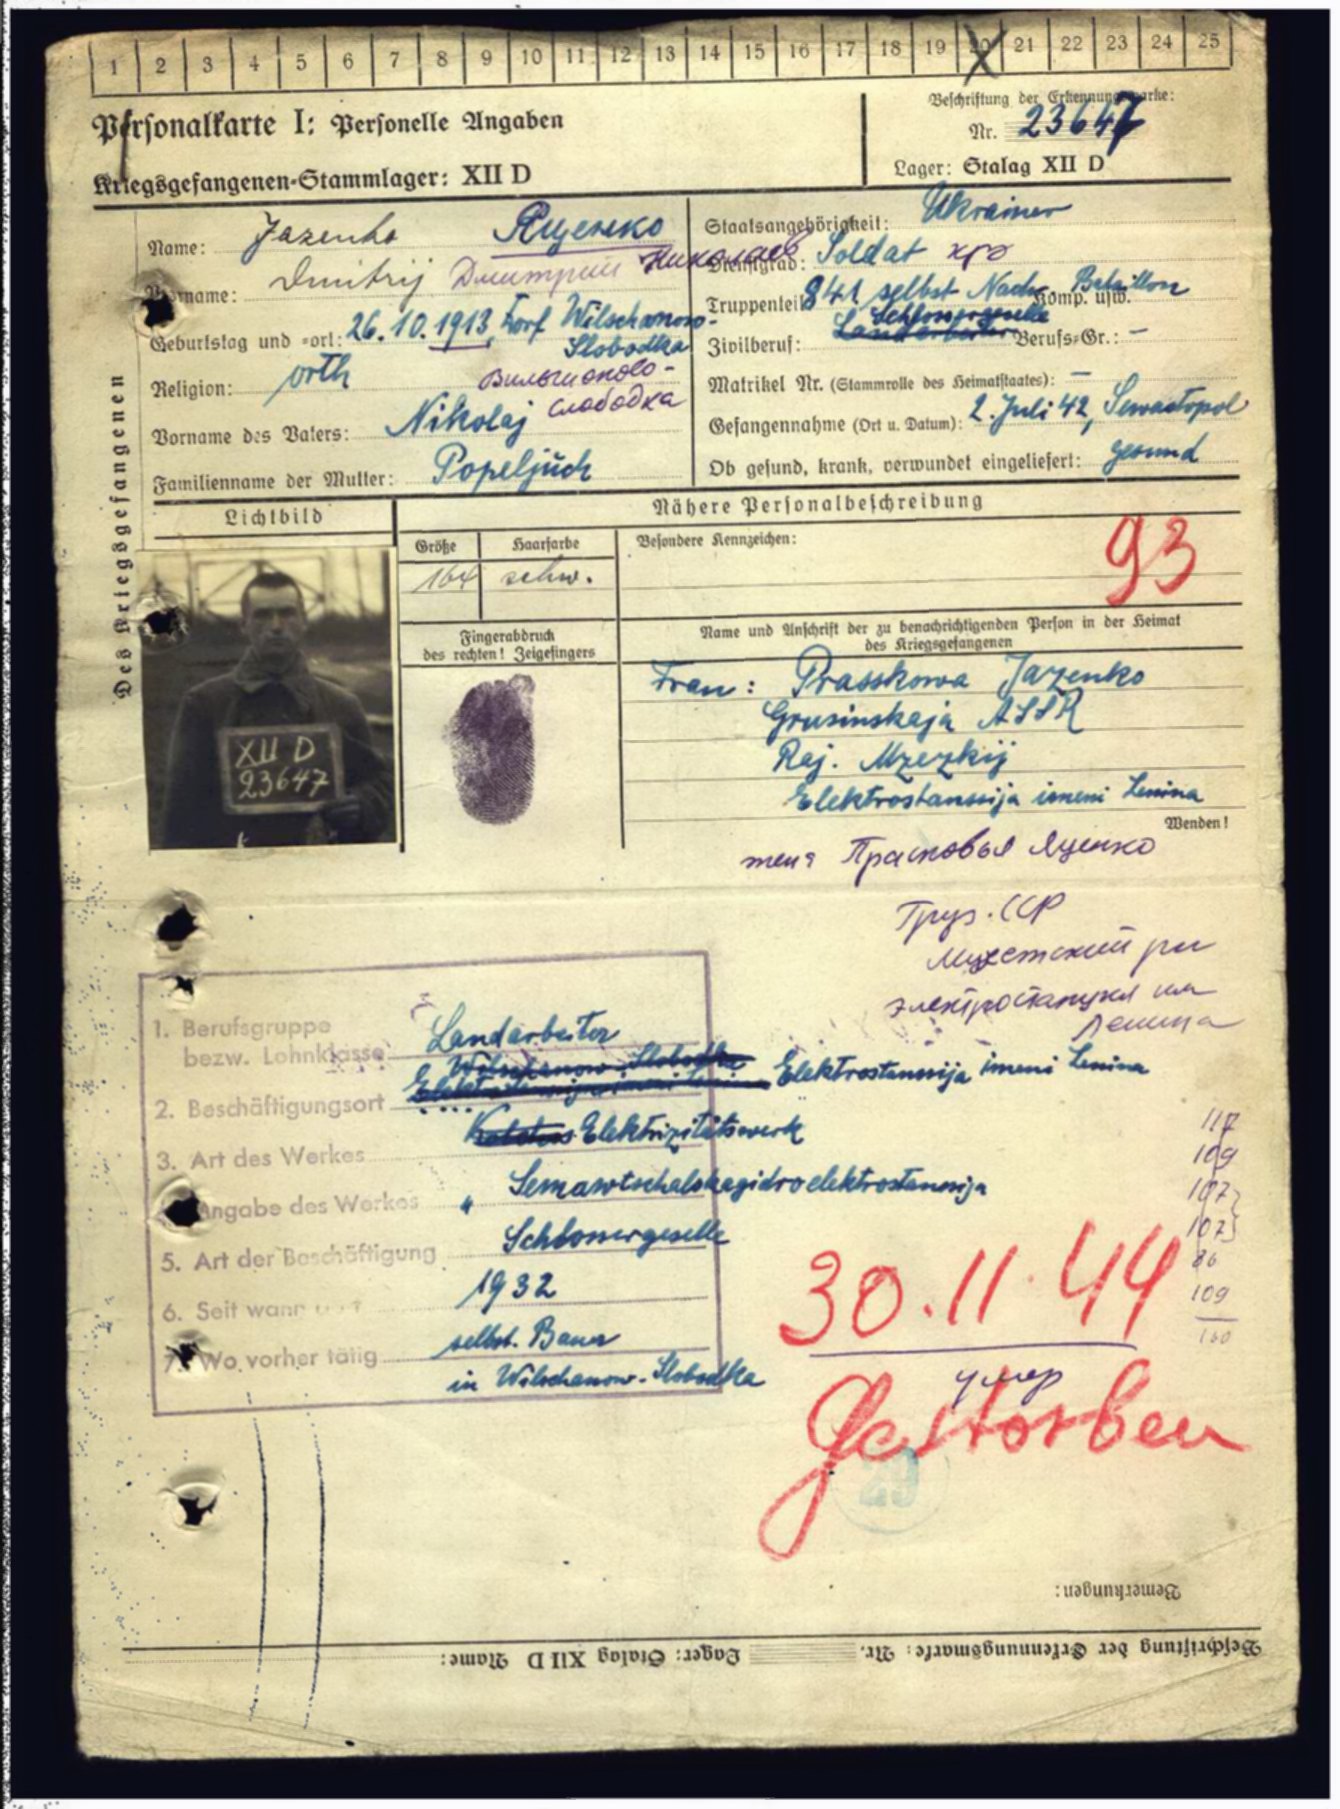 1 2 3 4 5 6 7 8 9 10 11 12 13 14 15 16 17 18 19 20 21 22 23 24 25
Personalkarte I: Personelle Angaben
Kriegsgefangenen-Stammlager: XII D
Beschriftung der Erkennungsmarke:
Nr. 23647
Lager: Stalag XII D
Des Kriegsgefangenen
Name: Jazenko Яценко
Vorname: Dmitrij Дмитрий Николаев
Geburtstag und -ort: 26.10.1913, Dorf Wilschanowo-
Slobodka
Religion: orth
Вильшаново-
слободка
Vorname des Vaters: Nikolaj
Familienname der Mutter: Popeljuch
Staatsangehörigkeit: Ukrainer
Dienstgrad: Soldat кр
Truppenteil: 841 selbst Nachr. Komp. usw. Bataillon
Schlossergeselle
Zivilberuf: Landarbeiter Berufs-Gr.: –
Matrikel Nr. (Stammrolle des Heimatstaates): –
Gefangennahme (Ort u. Datum): 2. Juli 42, Sewastopol
Ob gesund, krank, verwundet eingeliefert: gesund
Lichtbild
Nähere Personalbeschreibung
Größe Haarfarbe Besondere Kennzeichen:
164 schw.
93
Fingerabdruck
des rechten! Zeigefingers
Name und Anschrift der zu benachrichtigenden Person in der Heimat
des Kriegsgefangenen
Frau: Prasskowa Jazenko
Grusinskaja ASSR
Raj. Mzezkij
Elektrostanssija imeni Lenina
Wenden!
XII D
23647
жена Прасковья Яценко
Груз. ССР
Мцхетский р-н
электростанция им
Ленина
1. Berufsgruppe
bezw. Lohnklasse Landarbeiter
Wilschanow. Slobodka
2. Beschäftigungsort Elektrostanssija imeni Lenina Elektrostanssija imeni Lenina
3. Art des Werkes Kolchos Elektrizitätswerk
Angabe des Werkes " Semawtschalskagidroelektrostanssija
5. Art der Beschäftigung Schlossergeselle
6. Seit wann 1932
7. Wo vorher tätig selbst. Bauer
in Wilschanow. Slobodka
117
109
107
107
86
109
160
30.11.44
умер
Gestorben
29
Bemerkungen:
Beschriftung der Erkennungsmarke: Nr. Lager: Stalag XII D Name: